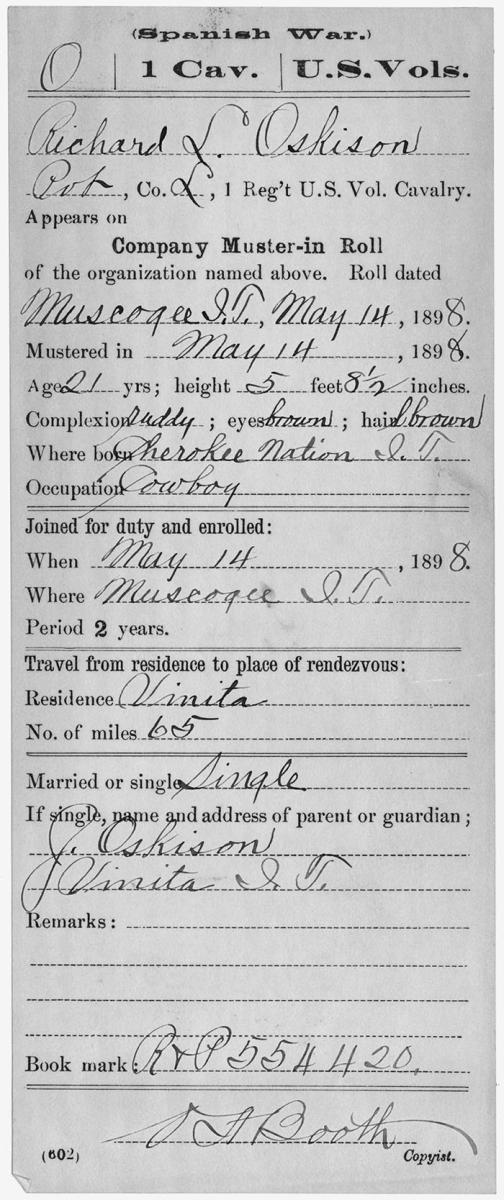 (Spanish War.)
O | 1 Cav. | U.S. Vols.
Richard L. Oskison
Pvt, Co. L, 1 Reg't U.S. Vol. Cavalry.
Appears on
Company Muster-in Roll
of the organization named above. Roll dated
Muscogee I.T., May 14, 1898.
Mustered in May 14, 1898.
Age 21 yrs; height 5 feet 8 1/2 inches.
Complexion ruddy; eyes brown; hair l. brown
Where born Cherokee Nation I.T.
Occupation Cowboy
Joined for duty and enrolled:
When May 14, 1898.
Where Muscogee I.T.
Period 2 years.
Travel from residence to place of rendezvous:
Residence Vinita
No. of miles 65
Married or single Single
If single, name and address of parent or guardian;
J. Oskison
Vinita I.T.
Remarks:
Book mark: R&P 554420.
Booth
(602) Copyist.